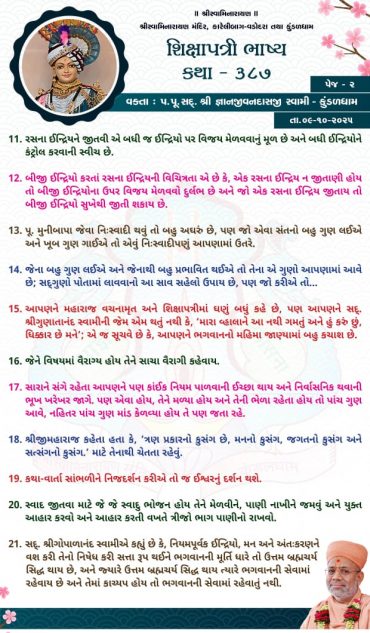 ॥ શ્રીસ્વામિનારાયણ ॥
શ્રીસ્વામિનારાયણ મંદિર, કારેલીબાગ-વડોદરા તથા કુંડળધામ
શિક્ષાપત્રી ભાષ્ય
કથા - ૩૮૭
પેજ - ૨
વક્તા : પ.પૂ.સદ્. શ્રી જ્ઞાનજીવનદાસજી સ્વામી - કુંડળધામ
તા.૦૯-૧૦-૨૦૨૫
11. રસના ઈન્દ્રિયને જીતવી એ બધી જ ઈન્દ્રિયો પર વિજય મેળવવાનું મૂળ છે અને બધી ઈન્દ્રિયોને
કંટ્રોલ કરવાની સ્વીચ છે.
12. બીજી ઈન્દ્રિયો કરતાં રસના ઈન્દ્રિયની વિચિત્રતા એ છે કે, એક રસના ઈન્દ્રિય ન જીતાણી હોય
તો બીજી ઈન્દ્રિયોના ઉપર વિજય મેળવવો દુર્લભ છે અને જો એક રસના ઈન્દ્રિય જીતાય તો
બીજી ઈન્દ્રિયો સુખેથી જીતી શકાય છે.
13. પૂ. મુનીબાપા જેવા નિઃસ્વાદી થવું તો બહુ અઘરું છે, પણ જો એવા સંતનો બહુ ગુણ લઈએ
અને ખૂબ ગુણ ગાઈએ તો એવું નિઃસ્વાદીપણું આપણામાં ઉતરે.
14. જેના બહુ ગુણ લઈએ અને જેનાથી બહુ પ્રભાવિત થઈએ તો તેના એ ગુણો આપણામાં આવે
છે; સદ્ગુણો પોતામાં લાવવાનો આ સાવ સહેલો ઉપાય છે, પણ જો કરીએ તો...
15. આપણને મહારાજ વચનામૃત અને શિક્ષાપત્રીમાં ઘણું બધું કહે છે, પણ આપણને સદ્.
શ્રીગુણાતાનંદ સ્વામીની જેમ એમ થતું નથી કે, 'મારા વ્હાલાને આ નથી ગમતું અને હું કરું છું,
ધિક્કાર છે મને'; એ જ સૂચવે છે કે, આપણને ભગવાનનો મહિમા જાણ્યામાં બહુ કચાશ છે.
16. જેને વિષયમાં વૈરાગ્ય હોય તેને સાચા વૈરાગી કહેવાય.
17. સારાને સંગે રહેતા આપણને પણ કાંઈક નિયમ પાળવાની ઈચ્છા થાય અને નિર્વાસનિક થવાની
ભૂખ ખરેખર જાગે. પણ એવા હોય, તેને મળ્યા હોય અને તેની ભેળા રહેતા હોય તો પાંચ ગુણ
આવે, નહિતર પાંચ ગુણ માંડ કેળવ્યા હોય તે પણ જતા રહે.
18. શ્રીજીમહારાજ કહેતા હતા કે, 'ત્રણ પ્રકારનો કુસંગ છે, મનનો કુસંગ, જગતનો કુસંગ અને
સત્સંગનો કુસંગ.' માટે તેનાથી ચેતતા રહેવું.
19. કથા-વાર્તા સાંભળીને નિજદર્શન કરીએ તો જ ઈશ્વરનું દર્શન થશે.
20. સ્વાદ જીતવા માટે જે જે સ્વાદુ ભોજન હોય તેને મેળવીને, પાણી નાખીને જમવું અને યુક્ત
આહાર કરવો અને આહાર કરતી વખતે ત્રીજો ભાગ પાણીનો રાખવો.
21. સદ્. શ્રીગોપાળાનંદ સ્વામીએ કહ્યું છે કે, નિયમપૂર્વક ઈન્દ્રિયો, મન અને અંતઃકરણને
વશ કરી તેનો નિષેધ કરી સત્તા રૂપ થઈને ભગવાનની મૂર્તિ ધારે તો ઉત્તમ બ્રહ્મચર્ય
સિદ્ધ થાય છે, અને જ્યારે ઉત્તમ બ્રહ્મચર્ય સિદ્ધ થાય ત્યારે ભગવાનની સેવામાં
રહેવાય છે અને તેમાં કાચ્યપ હોય તો ભગવાનની સેવામાં રહેવાતું નથી.